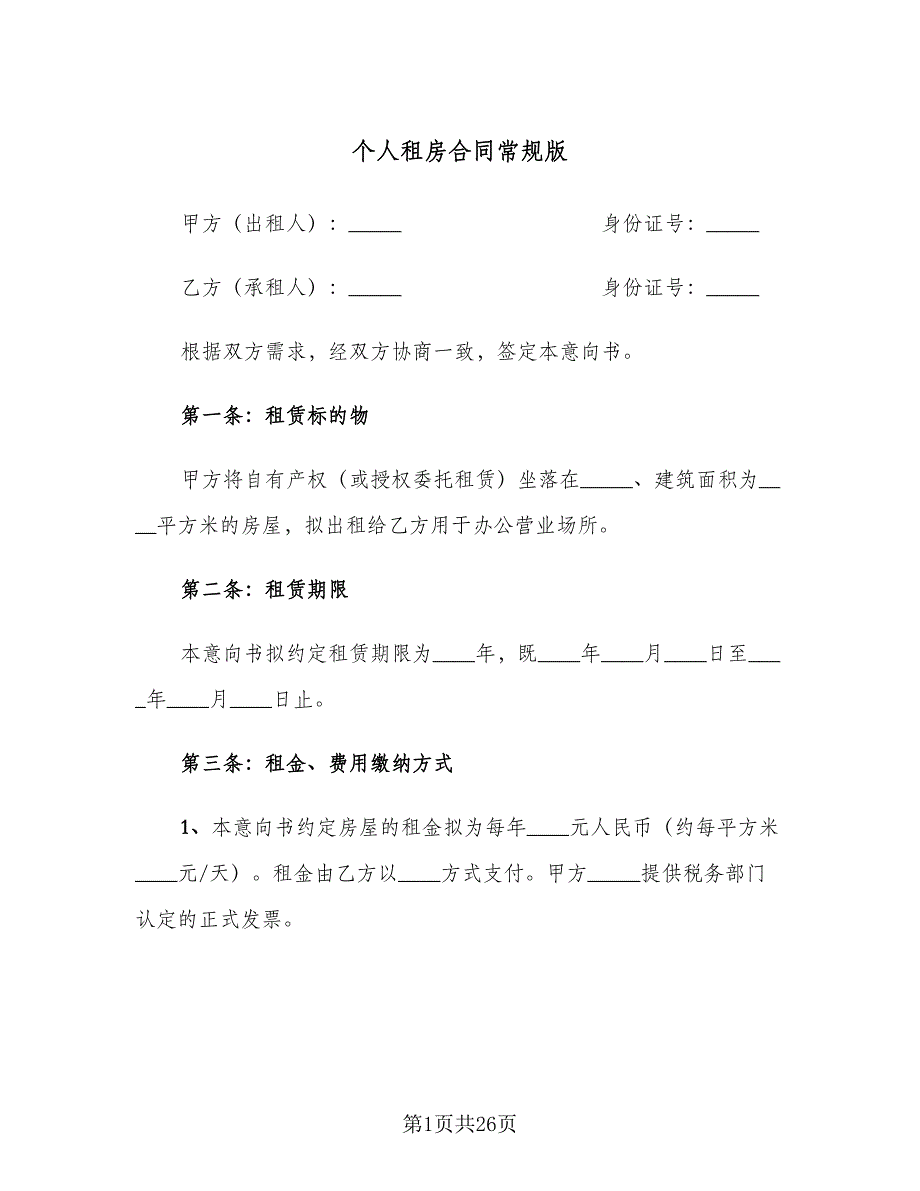 个人租房合同常规版
甲方（出租人）：_____ 身份证号：_____
乙方（承租人）：_____ 身份证号：_____
根据双方需求，经双方协商一致，签定本意向书。
第一条：租赁标的物
甲方将自有产权（或授权委托租赁）坐落在_____、建筑面积为__
__平方米的房屋，拟出租给乙方用于办公营业场所。
第二条：租赁期限
本意向书拟约定租赁期限为____年，既____年____月____日至___
_年____月____日止。
第三条：租金、费用缴纳方式
1、本意向书约定房屋的租金拟为每年____元人民币（约每平方米
____元/天）。租金由乙方以____方式支付。甲方_____提供税务部门
认定的正式发票。
第1页共26页